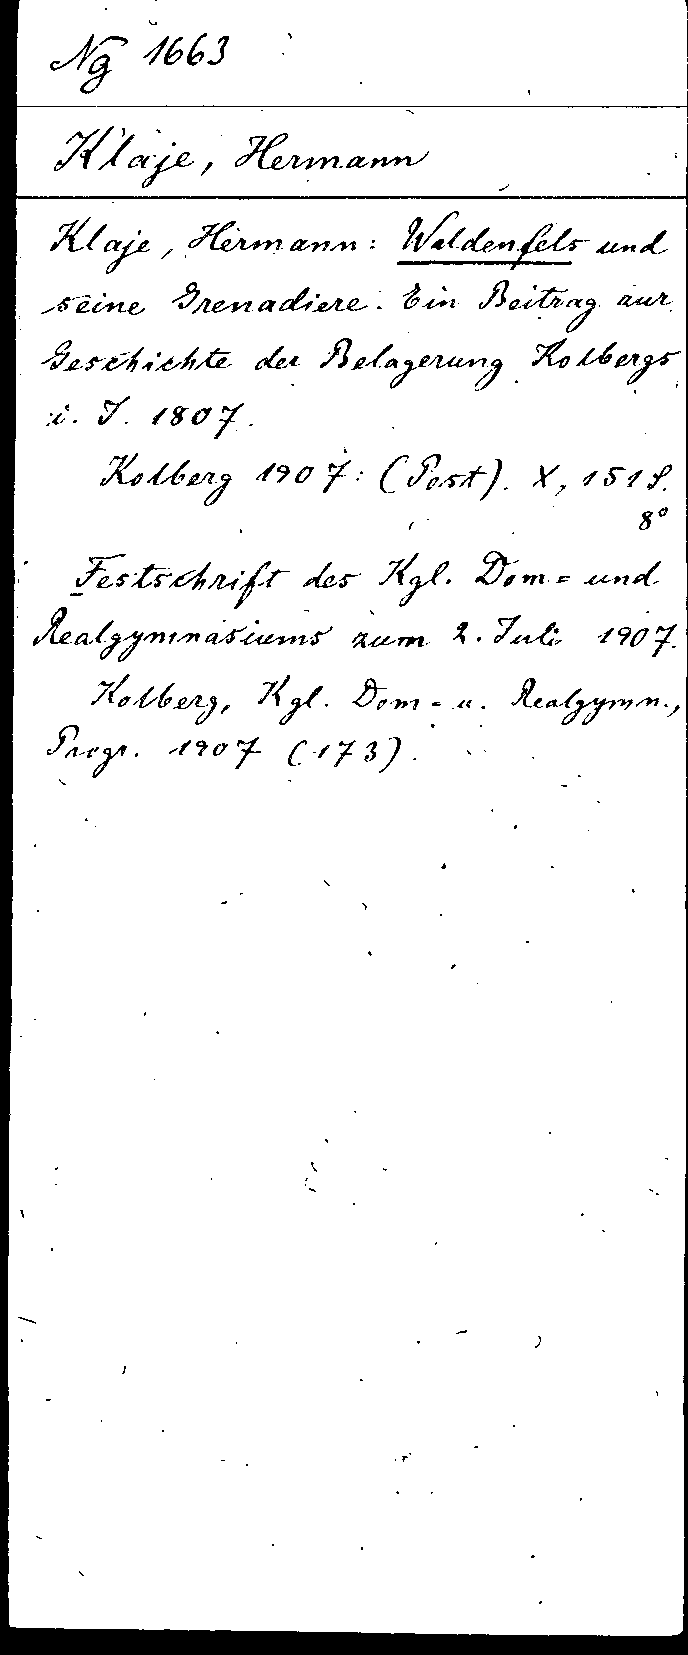 Ng 1663
Klaje, Hermann
Klaje, Hermann: Waldenfels und
seine Grenadiere. Ein Beitrag zur
Geschichte der Belagerung Kolbergs
i. J. 1807.
Kolberg 1907: (Post). X, 151 S.
8°
Festschrift des Kgl. Dom= und
Realgymnasiums zum 2. Juli 1907.
Kolberg, Kgl. Dom- u. Realgymn.,
Progr. 1907 (173).